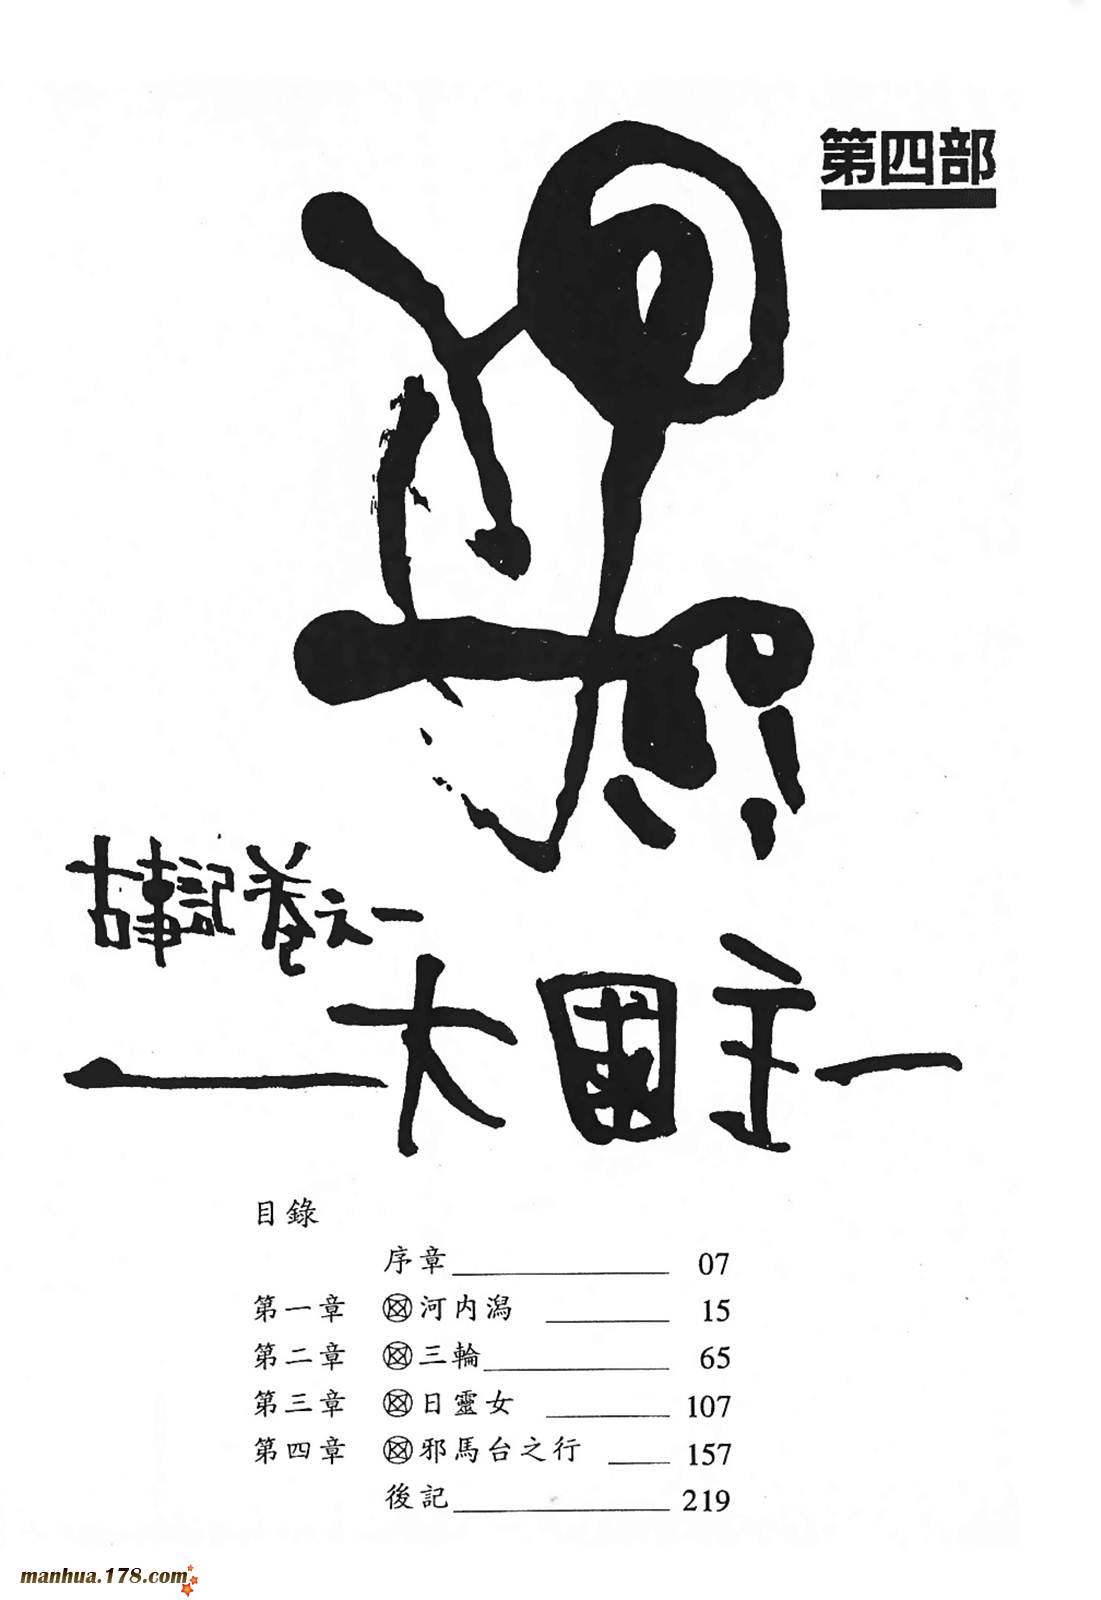 第四部
古事記卷之一
大國主
目錄
序章 07
第一章 河内潟 15
第二章 三輪 65
第三章 日靈女 107
第四章 邪馬台之行 157
後記 219
manhua.178.com